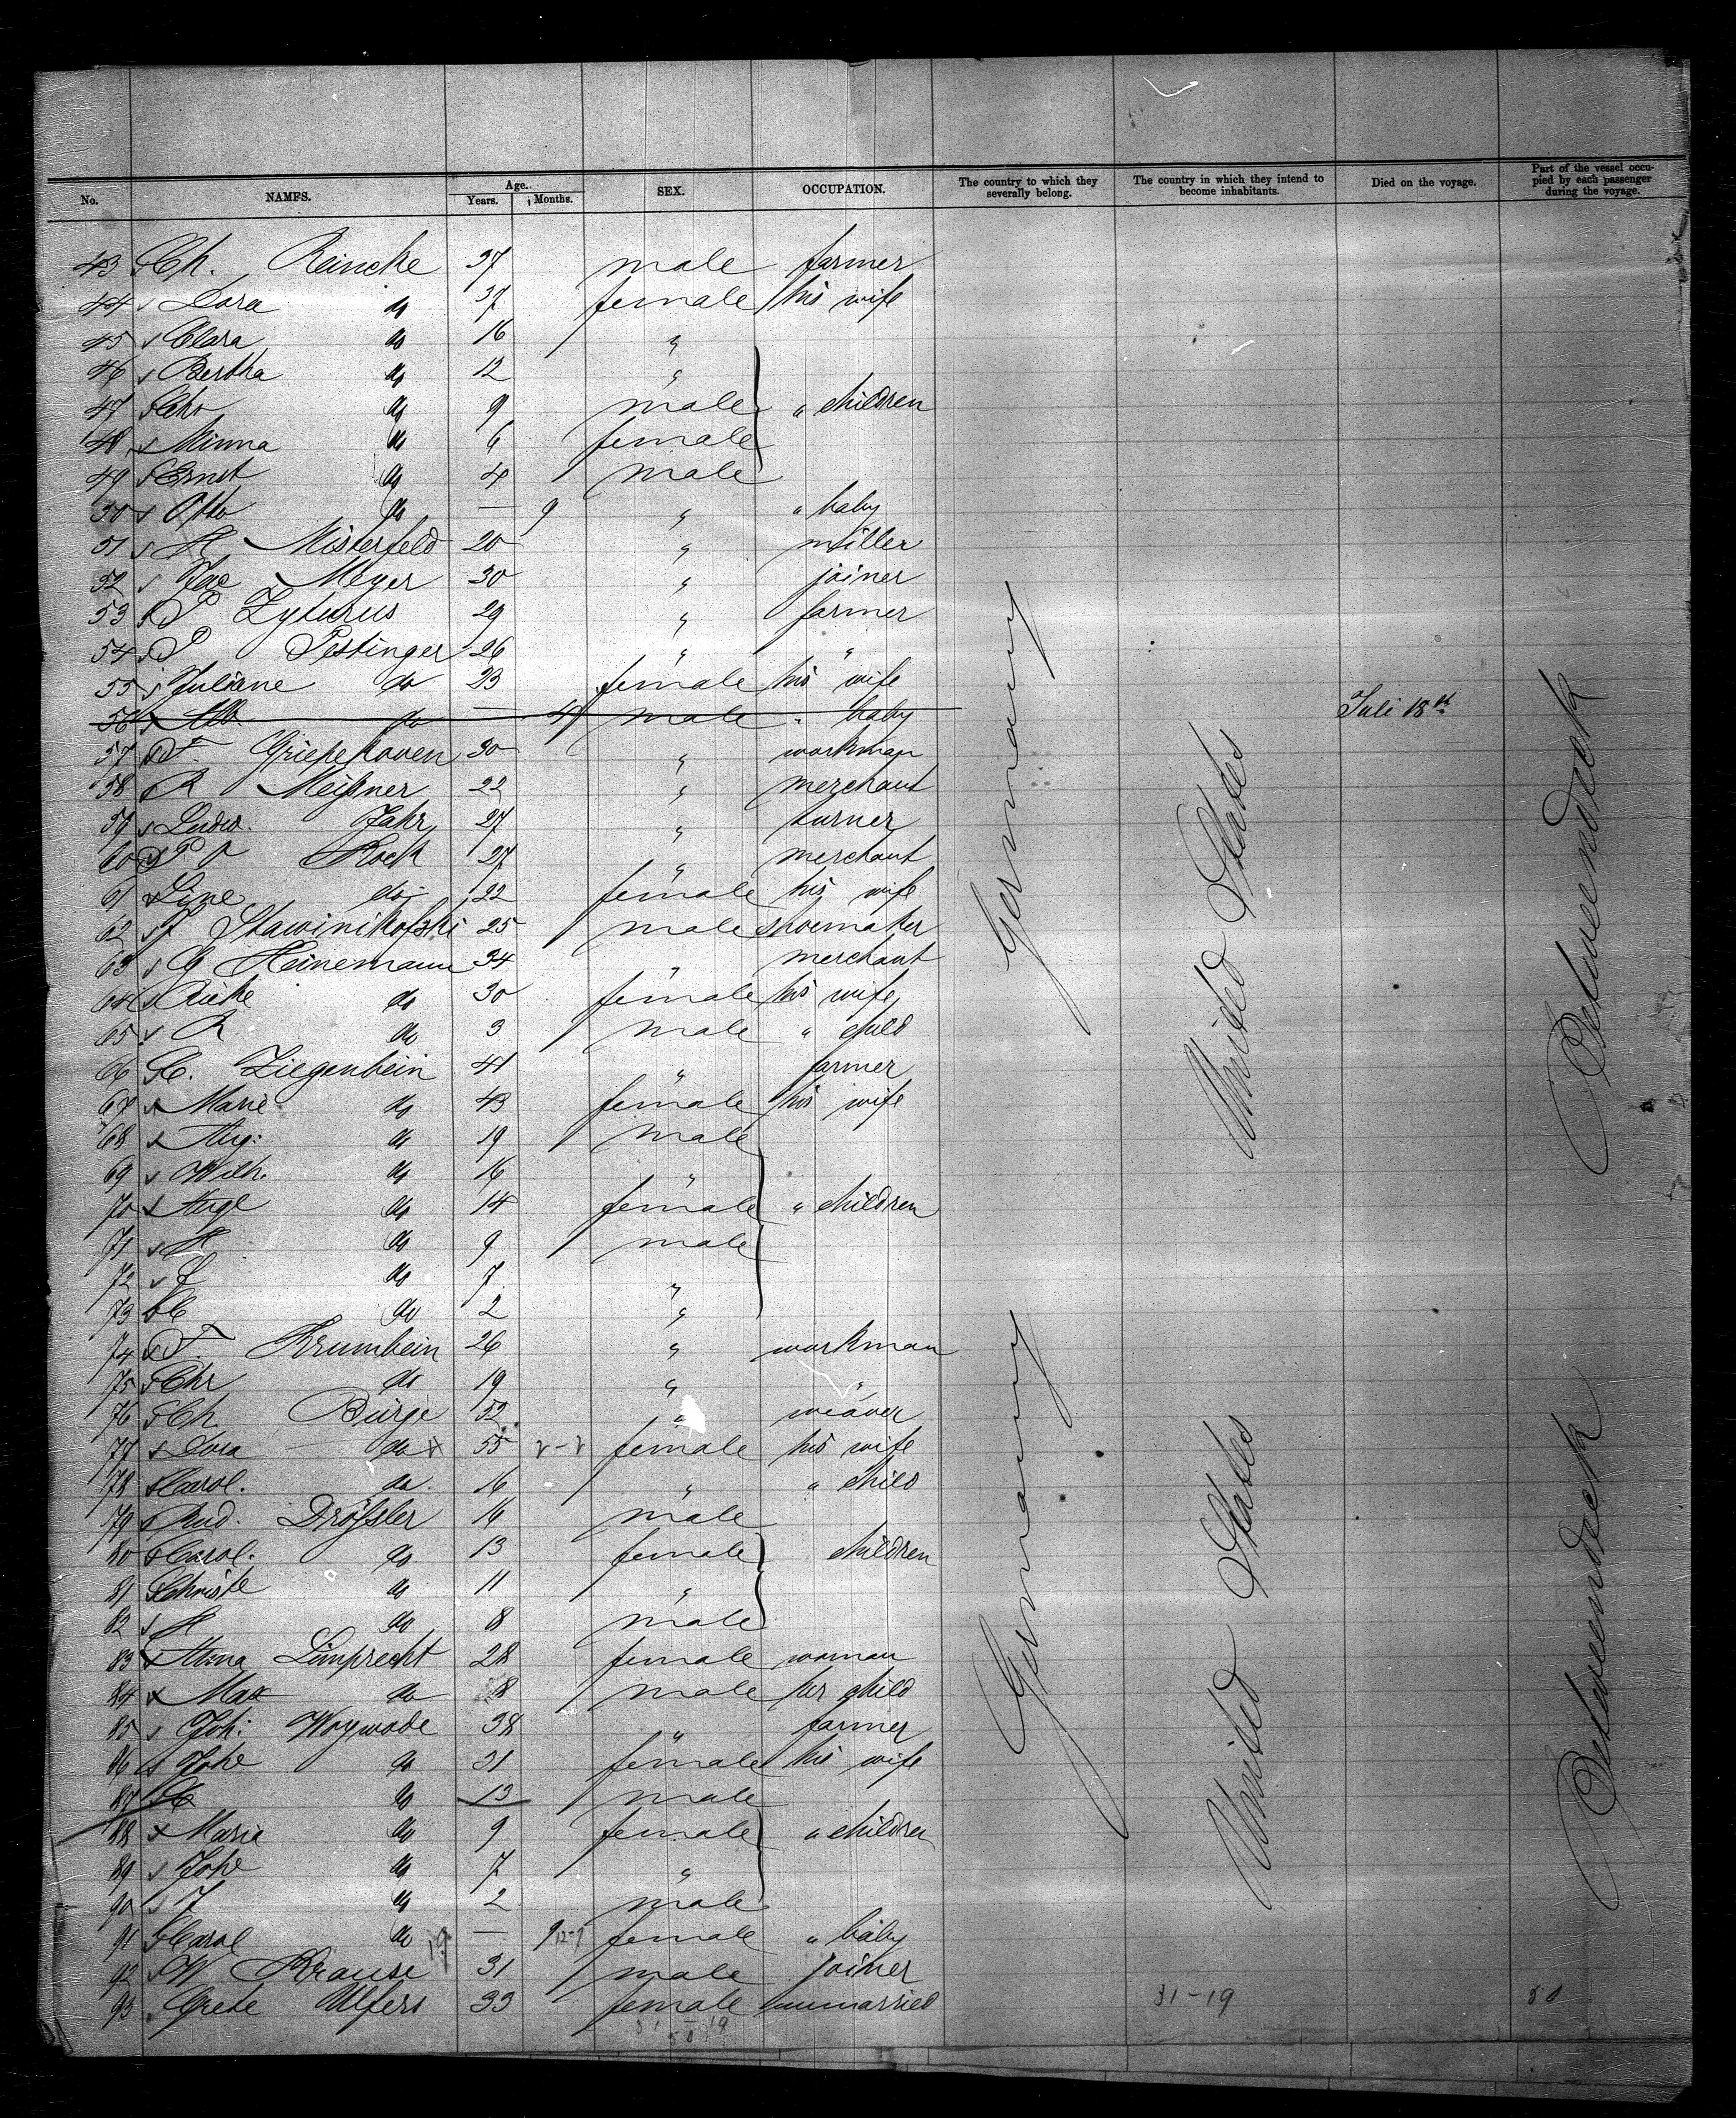 No. NAMES. Age. Years. Months. SEX. OCCUPATION. The country to which they severally belong. The country in which they intend to become inhabitants. Died on the voyage. Part of the vessel occupied by each passenger during the voyage.
43 Ch. Reincke 37 male farmer
44 Dora do 37 female his wife
45 Clara do 16 "
46 Bertha do 12 "
47 do 9 male " children
48 Minna do 6 female
49 Ernst do 4 male
50 Otto do — 9 " " baby
51 H Misterfeld 20 " miller
52 Jac Meyer 30 " joiner
53 P Zyturus 29 " farmer
54 P Pestinger 26 " "
55 Juliane do 23 female his wife
56 do — 4 male " baby Juli 18th
57 F. Griepehoven 30 " workman
58 R Meißner 22 " merchant
59 Ludw. Jahr 27 " turner
60 P O Kock 27 " merchant
61 Line do 22 female his wife
62 Stawinikofski 25 male shoemaker
63 G Heinemann 34 " merchant
64 Rieke do 30 female his wife
65 R do 3 male " child
66 C. Ziegenbein 41 " farmer
67 Marie do 43 female his wife
68 Aug. do 19 male
69 Wilh. do 16 "
70 Auge do 14 female " children
71 H do 9 male
72 do 7 "
73 C do 2 "
74 F. Krumbein 26 " workman
75 Chr do 19 " "
76 Ch. Bürge 52 " weaver
77 Dora do 55 female his wife
78 Carol. do 16 " " child
79 Rud. Dröfsler 16 male
80 Carol. do 13 female children
81 Christe do 11 "
82 H do 8 male
83 Limprecht 28 female woman
84 Max do 8 male her child
85 Joh. Woywode 38 " farmer
86 Johe do 31 female his wife
87 do 13 male
88 Maria do 9 female " children
89 Johe do 7 "
90 J do 2 male
91 Carol do — 9 female " baby
92 W Krause 31 male joiner
93 Grete Ulfers 33 female unmarried
Germany
United States
Betweendeck
Germany
United States
Betweendeck
31-19
50